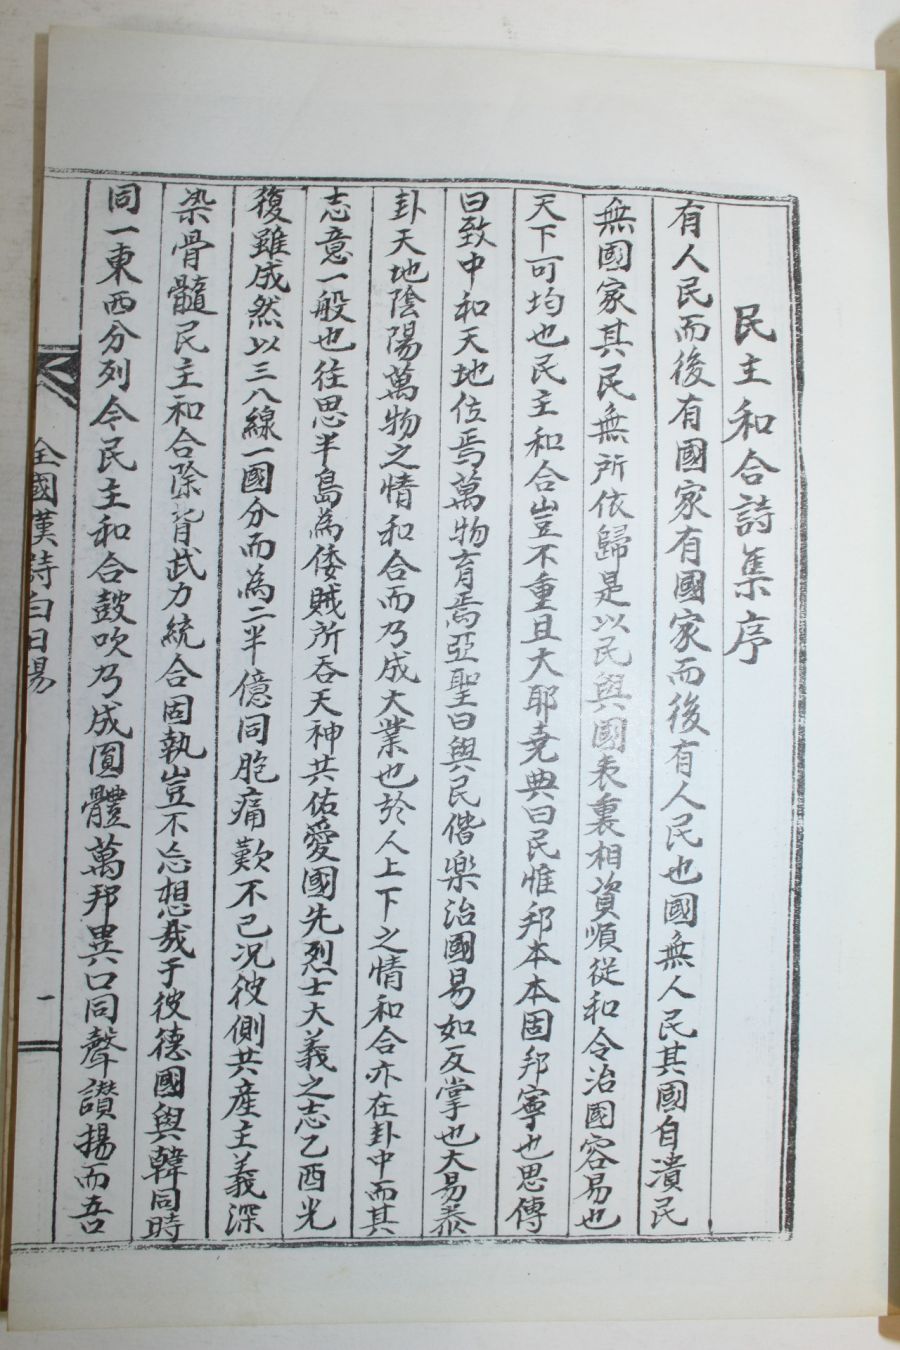 民主和合詩集序
有人民而後有國家有國家而後有人民也國無人民其國自潰民
無國家其民無所依歸是以民與國表裏相資順從和令治國容易也
天下可均也民主和合豈不重且大耶堯典曰民惟邦本本固邦寧也思傳
曰致中和天地位焉萬物育焉亞聖曰與民偕樂治國易如反掌也大易泰
卦天地陰陽萬物之情和合而乃成大業也於人上下之情和合亦在卦中而其
志意一般也往思半島為倭賊所吞天神共佑愛國先烈士大義之志乙酉光
復雖成然以三八線一國分而為二半億同胞痛歎不已况彼側共産主義深
染骨髓民主和合除背武力統合固執豈不忘想哉于彼德國與韓同時
同一東西分列今民主和合鼓吹乃成圓體萬邦異口同聲讃揚而吾
全國漢詩白日場
一